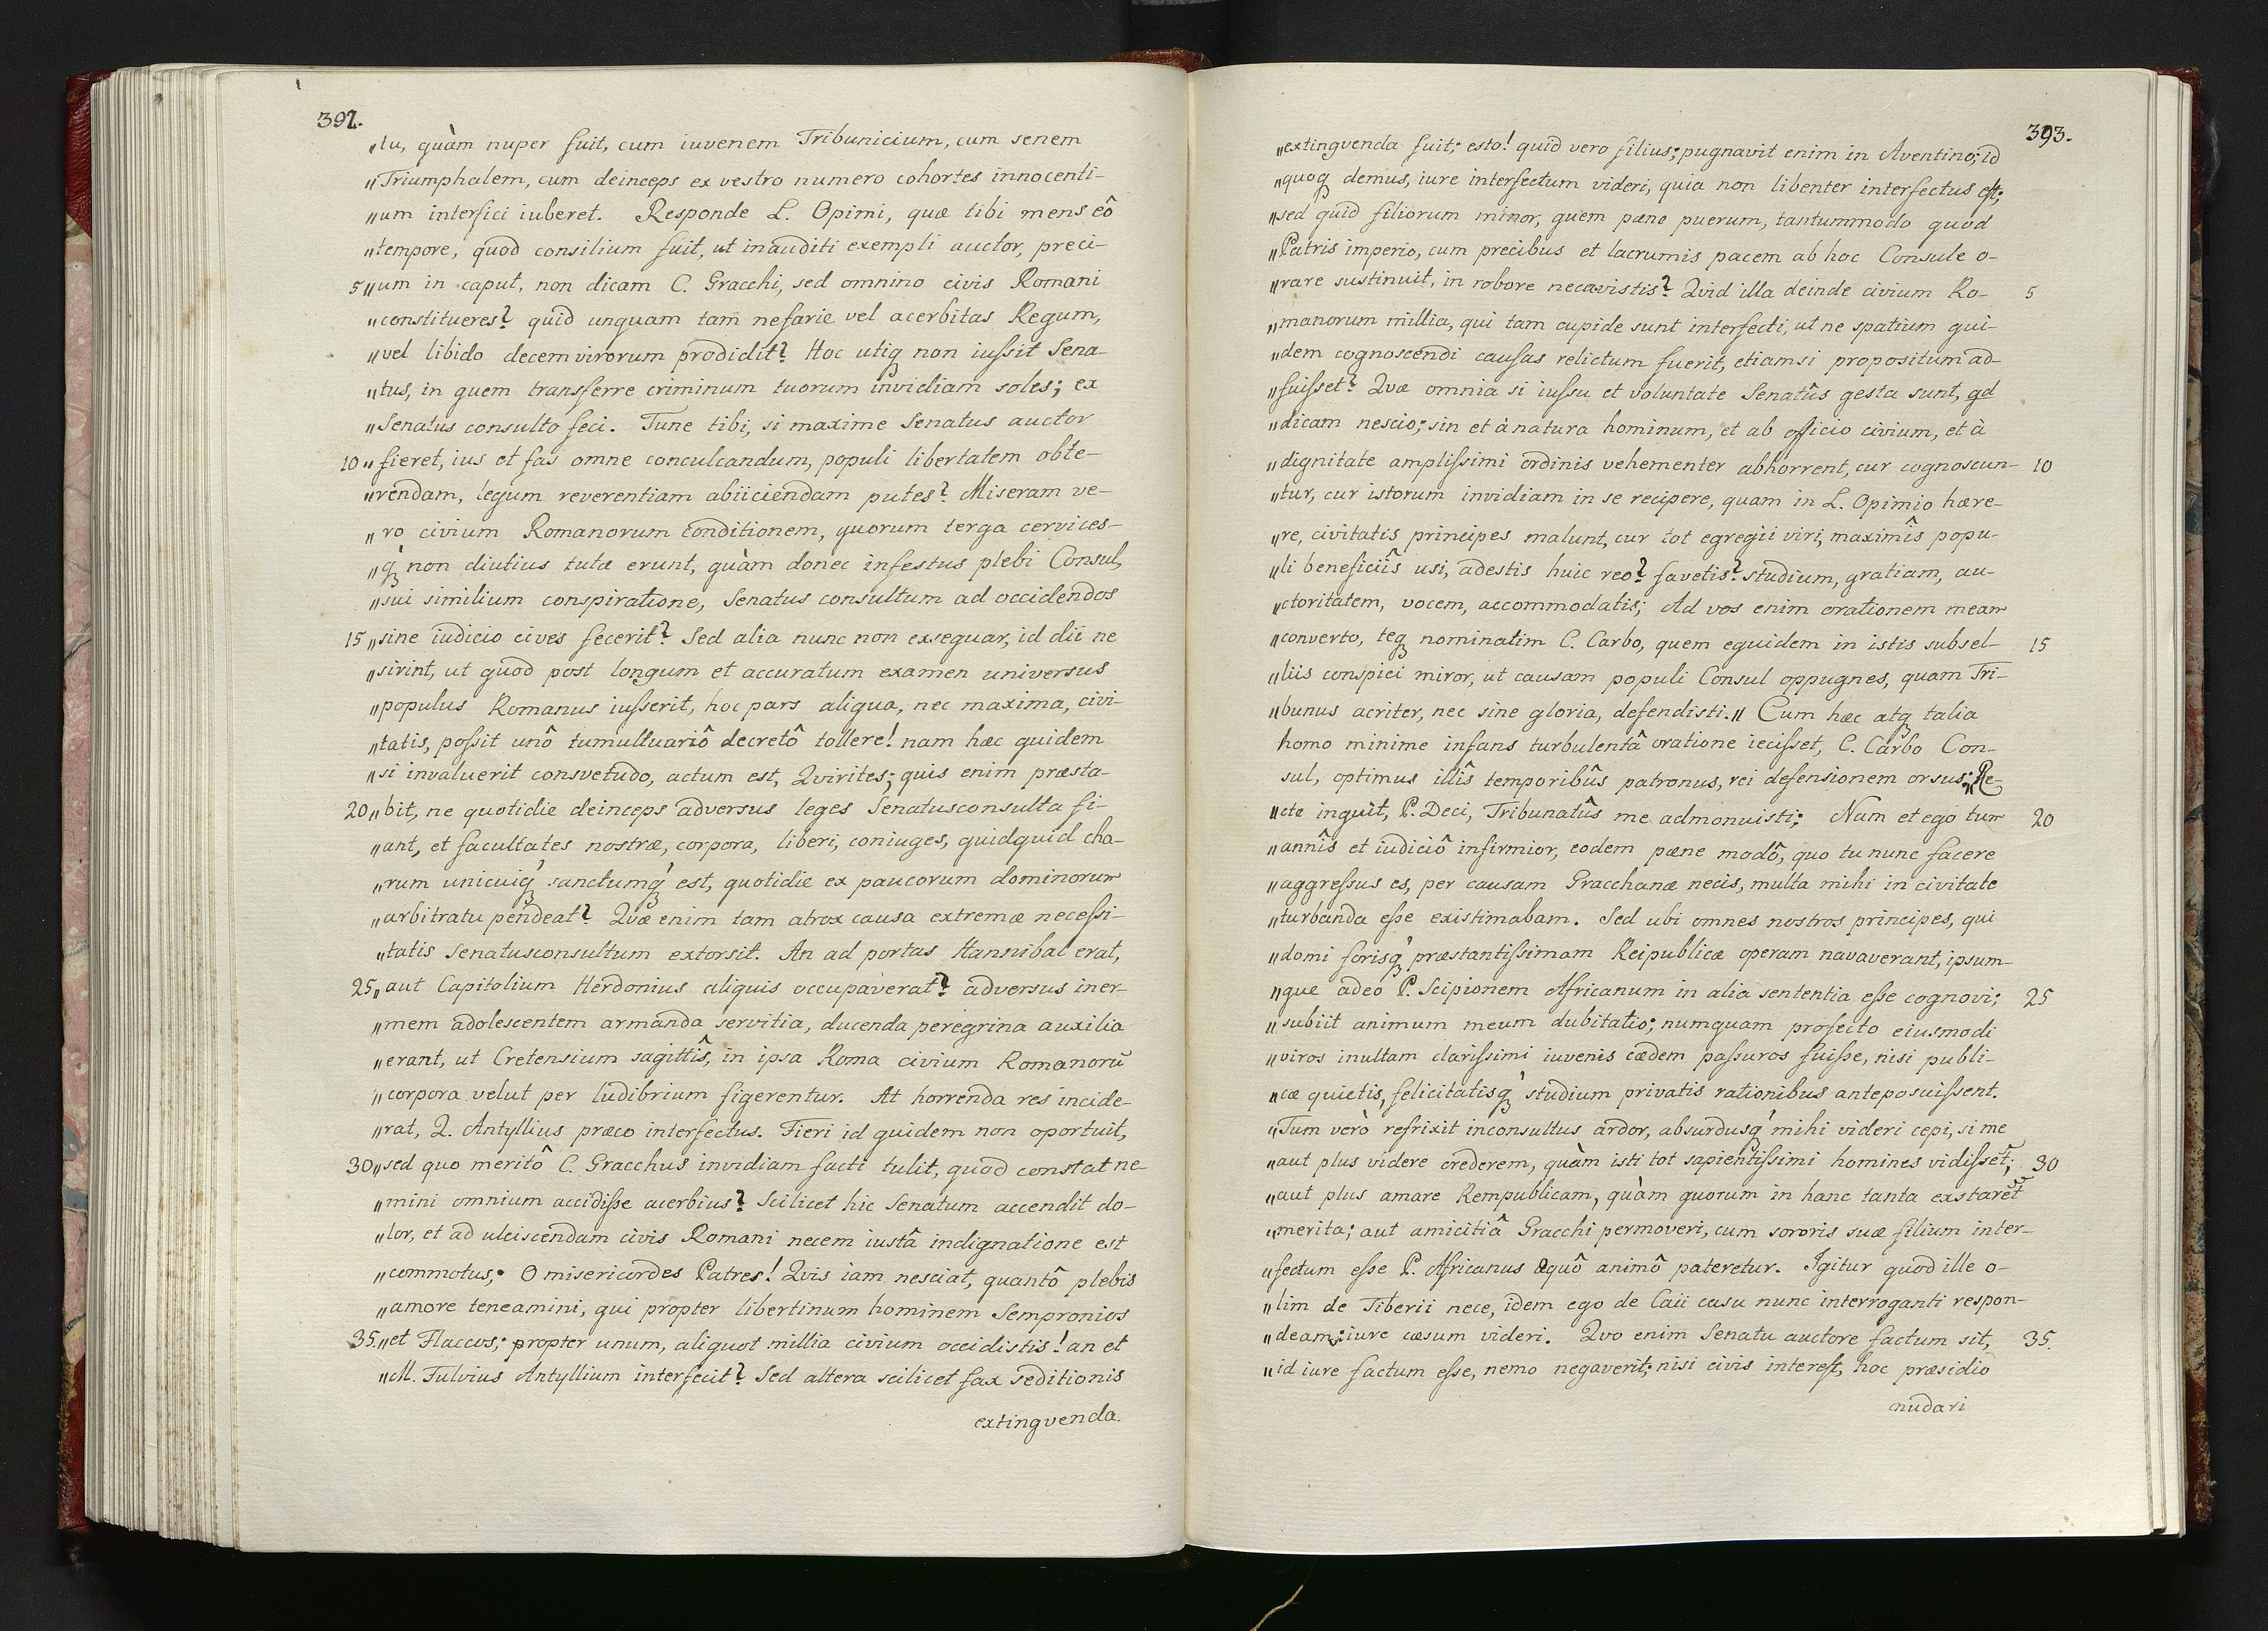 392.
„tu, quàm nuper fuit, cum iuvenem Tribunicium, cum senem
„Triumphalem, cum deinceps ex vestro numero cohortes innocenti-
„um interfici iuberet. Responde L. Opimi, quæ tibi mens eô
„tempore, quod consilium fuit, ut inauditi exempli auctor, preci-
5 „um in caput, non dicam C. Gracchi, sed omnino civis Romani
„constitueres? quid unquam tam nefarie vel acerbitas Regum,
„vel libido decemvirorum prodidit? Hoc utiqꝫ non iuſsit Sena-
„tus, in quem transferre criminum tuorum invidiam soles; ex
„Senatus consulto feci. Tune tibi, si maxime Senatus auctor
10 „fieret, ius et fas omne conculcandum, populi libertatem obte-
„rendam, legum reverentiam abiiciendam putes? Miseram ve-
„ro civium Romanorum conditionem, quorum terga cervices-
„qꝫ non diutius tutæ erunt, quàm donec infestus plebi Consul,
„sui similium conspiratione, Senatus consultum ad occidendos
15 „sine iudicio cives fecerit? Sed alia nunc non exsequar, id dii ne
„sirint, ut quod post longum et accuratum examen universus
„populus Romanus iuſserit, hoc pars aliqua, nec maxima, civi-
„tatis, poſsit unô tumultuariô decretô tollere! nam hæc quidem
„si invaluerit consvetudo, actum est, Qvirites; quis enim præsta-
20 „bit, ne quotidie deinceps adversus leges Senatusconsulta fi-
„ant, et facultates nostræ, corpora, liberi, coniuges, quidquid cha-
„rum unicuiqꝫ sanctumqꝫ est, quotidie ex paucorum dominorum
„arbitratu pendeat? Qvæ enim tam atrox causa extremæ neceſsi-
„tatis Senatusconsultum extorsit. An ad portas Hannibal erat,
25 „aut Capitolium Herdonius aliquis occupaverat? adversus iner-
„mem adolescentem armanda servitia, ducenda peregrina auxilia
„erant, ut Cretensium sagittîs, in ipsa Roma civium Romanorū
„corpora velut per ludibrium figerentur. At horrenda res incide-
„rat, Q. Antyllius præco interfectus. Fieri id quidem non oportuit,
30 „sed quo meritô C. Gracchus invidiam facti tulit, quod constat ne-
„mini omnium accidiſse acerbius? Scilicet hic Senatum accendit do-
„lor, et ad ulciscendam civis Romani necem iustâ indignatione est
„commotus; O misericordes Patres! Qvis iam nesciat, quantô plebis
„amore teneamini, qui propter libertinum hominem Sempronios
35. „et Flaccos; propter unum, aliquot millia civium occidistis! an et
„M. Fulvius Antyllium interfecit? Sed altera scilicet fax seditionis
extingvenda.
393.
„extingvenda fuit; esto! quid vero filius; pugnavit enim in Aventino; id
„quoqꝫ demus, iure interfectum videri, quia non libenter interfectus est;
„sed quid filiorum minor, quem pæne puerum, tantummodo quod
„Patris imperio, cum precibus et lacrumis pacem ab hoc Consule o-
„rare sustinuit, in robore necavistis? Qvid illa deinde civium Ro- 5
„manorum millia, qui tam cupide sunt interfecti, ut ne spatium qui-
„dem cognoscendi causas relictum fuerit, etiamsi propositum ad-
„fuiſset? Qvæ omnia si iuſsu et voluntate Senatûs gesta sunt, qd
„dicam nescio; sin et à natura hominum, et ab officio civium, et à
„dignitate ampliſsimi ordinis vehementer abhorrent, cur cognoscun- 10
„tur, cur istorum invidiam in se recipere, quam in L. Opimio hære-
„re, civitatis principes malunt, cur tot egregii viri, maximîs popu-
„li beneficiîs usi, adestis huic reo? favetis? studium, gratiam, au-
„ctoritatem, vocem, accommodatis; Ad vos enim orationem meam
„converto, teqꝫ nominatim C. Carbo, quem equidem in istis subsel- 15
„liis conspici miror, ut causam populi Consul oppugnes, quam Tri-
„bunus acriter, nec sine gloria, defendisti.„ Cum hæc atqꝫ talia
homo minime infans turbulentâ oratione ieciſset, C. Carbo Con-
sul, optimus illîs temporibûs patronus, rei defensionem orsus: „Re-
„cte inquit, P. Deci, Tribunatûs me admonuisti; Nam et ego tum 20
„annîs et iudiciô infirmior, eodem pæne modô, quo tu nunc facere
„aggreſsus es, per causam Gracchanæ necis, multa mihi in civitate
„turbanda eſse existimabam. Sed ubi omnes nostros principes, qui
„domi forisqꝫ præstantiſsimam Reipublicæ operam navaverant, ipsum-
„que adeo P. Scipionem Africanum in alia sententia eſse cognovi; 25
„subiit animum meum dubitatio; numquam profecto eiusmodi
„viros inultam clariſsimi iuvenis cædem paſsuros fuiſse, nisi publi-
„cæ quietis, felicitatisqꝫ studium privatis rationibus anteposuiſsent.
„Tum verò refrixit inconsultus ardor, absurdusqꝫ mihi videri cepi, si me
„aut plus videre crederem, quàm isti tot sapientiſsimi homines vidiſset̃; 30
„aut plus amare Rempublicam, quàm quorum in hanc tanta exstaret̃
„merita; aut amicitiâ Gracchi permoveri, cum sororis suæ filium inter-
„fectum eſse P. Africanus æquô animô pateretur. Igitur quod ille o-
„lim de Tiberii nece, idem ego de Caii casu nunc interroganti respon-
„deam: iure cæsum videri. Qvo enim Senatu auctore factum sit, 35.
„id iure factum eſse, nemo negaverit; nisi civis interest, hoc præsidio
nudari